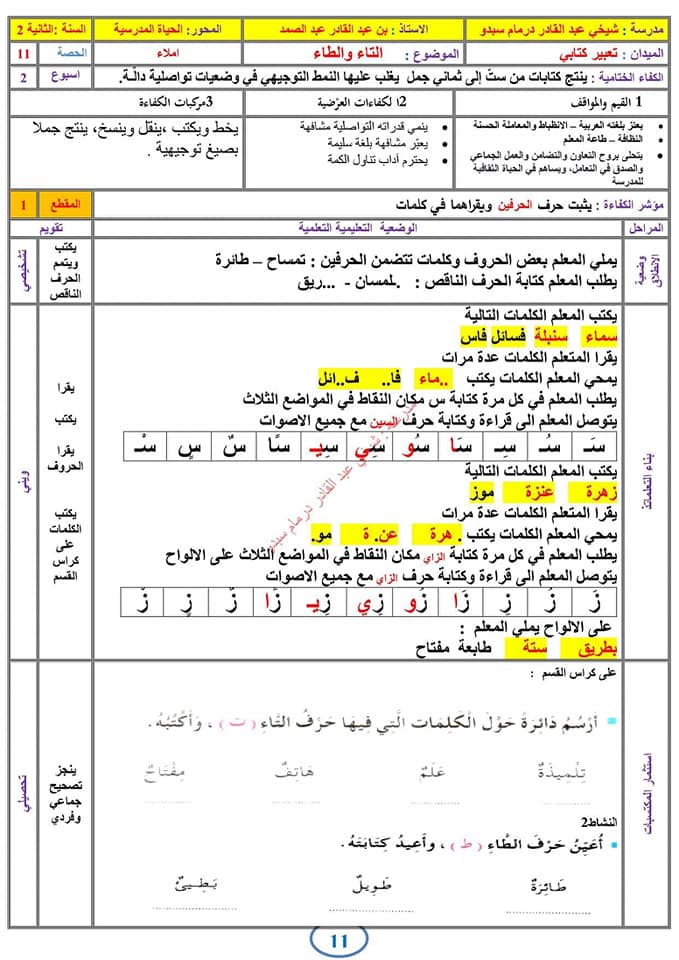 مدرسة : شيخي عبد القادر درمام سيدو الاستاذ : بن عبد القادر عبد الصمد المحور: الحياة المدرسية السنة :الثانية 2
الميدان : تعبير كتابي الموضوع : التاء والطاء املاء الحصة 11
الكفاء الختامية : ينتج كتابات من ستّ إلى ثماني جمل يغلب عليها النمط التوجيهي في وضعيات تواصلية دالّة. اسبوع 2
1 القيم والمواقف
يعتز بلغته العربية – الانظباط والمعاملة الحسنة
النظافة – طاعة المعلم
يتحلى بروح التعاون والتضامن والعمل الجماعي
والصدق في التعامل، ويساهم في الحياة الثقافية
للمدرسة
2ا لكفاءات العرّضية
ينمي قدراته التواصلية مشافهة
يعبّر مشافهة بلغة سليمة
يحترم آداب تناول الكمة
3مركبات الكفاءة
يخط ويكتب ،ينقل وينسخ، ينتج جملا
بصيغ توجيهية .
مؤشر الكفاءة : يثبت حرف الحرفين ويقراهما في كلمات المقطع 1
المراحل الوضعية التعليمية التعلمية تقويم
وضعية
الانطلاق
يملي المعلم بعض الحروف وكلمات تتضمن الحرفين : تمساح – طائرة
يطلب المعلم كتابة الحرف الناقص : ..لمسان - ...ريق
يكتب
ويتمم
الحرف
الناقص
تشخيصي
بناء التعلمات
يكتب المعلم الكلمات التالية
سماء سنبلة فسائل فاس
يقرا المتعلم الكلمات عدة مرات
يمحي المعلم الكلمات يكتب ..ماء فا.. ف..ائل
يطلب المعلم في كل مرة كتابة س مكان النقاط في المواضع الثلاث
يتوصل المعلم الى قراءة وكتابة حرف السين مع جميع الاصوات
سَـ سُـ سِـ سَا سُو سِي سِيـ سًا سٌ سٍ سْـ
يكتب المعلم الكلمات التالية
زهرة عنزة موز
يقرا المتعلم الكلمات عدة مرات
يمحي المعلم الكلمات يكتب . هرة عن. ة مو.
يطلب المعلم في كل مرة كتابة الزاي مكان النقاط في المواضع الثلاث على الالواح
يتوصل المعلم الى قراءة وكتابة حرف الزاي مع جميع الاصوات
زَ زُ زِ زَا زُو زِي زِيـ زًا زٌ زٍ زْ
على الالواح يملي المعلم :
بطريق ستة طابعة مفتاح
يقرا
يكتب
يقرا
الحروف
يكتب
الكلمات
على
كراس
القسم
ويني
مدرسة : شيخي عبد القادر درمام سيدو
استثمار المكتسبات
على كراس القسم :
أَرْسُمُ دَائِرَةً حَوْلَ الْكَلِمَاتِ الَّتِي فِيهَا حَرْفُ التَّاءِ ( ت ) ، وَأَكْتُبُهُ.
تِلْمِيذَةٌ عَلَمٌ هَاتِفٌ مِفْتَاحٌ
النشاط2
أُعَيِّنُ حَرْفَ الطَّاءِ ( ط ) ، وأُعِيدُ كِتَابَتَهُ.
طَائِرَةٌ طَوِيلٌ بَطِيئٌ
ينجز
تصحيح
جماعي
وفردي
تحصيلي
11